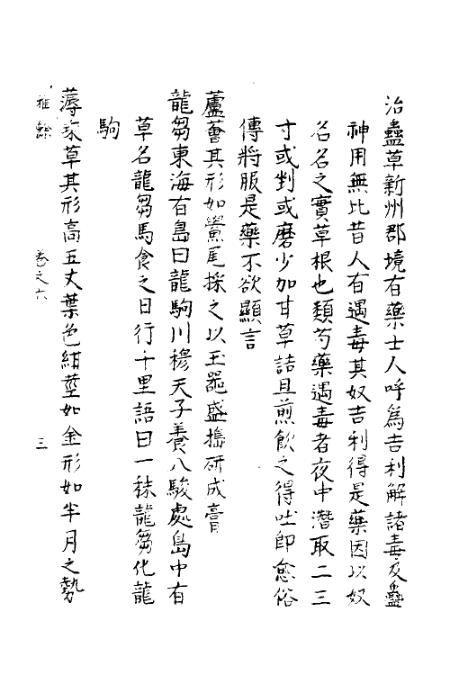 治蠱草新州郡境有藥士人呼為吉利解諸毒及蠱
神用無比昔人有遇毒其奴吉利得是藥因以奴
名名之實草根也類芍藥遇毒者夜中潛取二三
寸或剉或磨少加甘草詰旦煎飲之得吐即愈俗
傳將服是藥不欲顯言
蘆薈其形如鱟尾採之以玉器盛搗研成膏
龍芻東海有島曰龍駒川穆天子養八駿處島中有
草名龍芻馬食之日行千里語曰一秣龍芻化龍
駒
薄 草其形高五丈葉色紺莖如金形如半月之勢
雅餘 卷之六 三